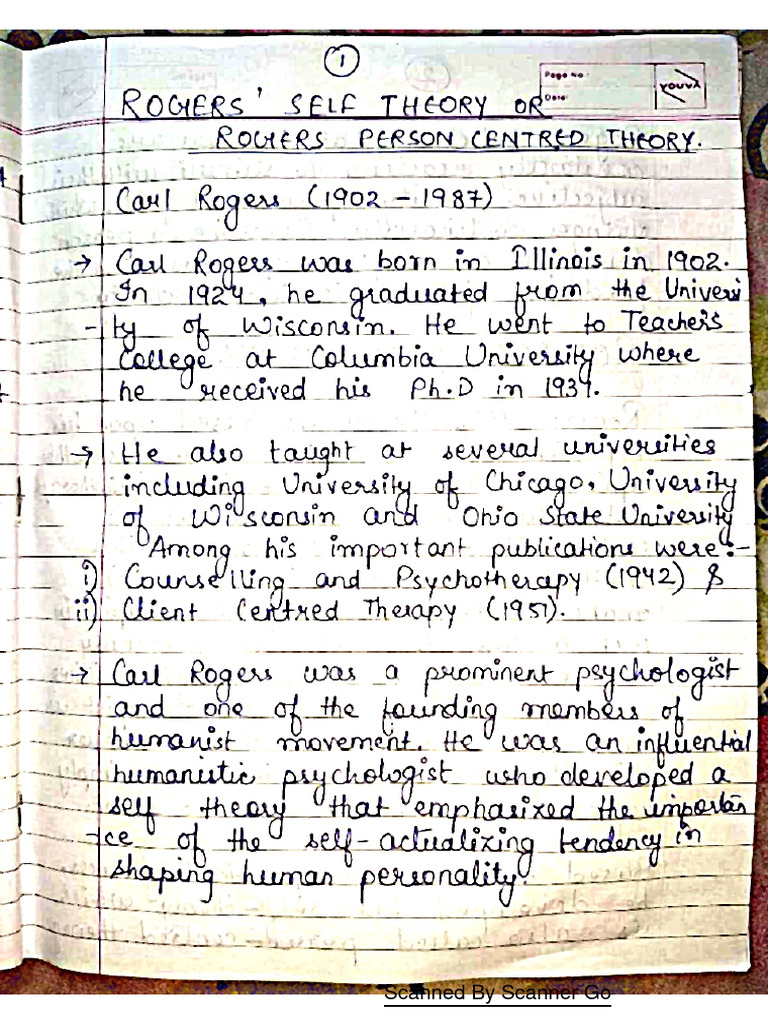 1
Page No:
Date:
YOUVA
ROGERS' SELF THEORY OR
ROGERS PERSON CENTRED THEORY.
Carl Rogers (1902 – 1987)
→ Carl Rogers was born in Illinois in 1902.
In 1924, he graduated from the Universi
-ty of Wisconsin. He went to Teacher's
College at Columbia University where
he received his Ph.D in 1931.
→ He also taught at several universities
including University of Chicago, University
of Wisconsin and Ohio State University
Among his important publications were:-
i) Counselling and Psychotherapy (1942) &
ii) Client Centred Therapy (1951).
→ Carl Rogers was a prominent psychologist
and one of the founding members of
humanist movement. He was an influential
humanistic psychologist who developed a
self theory that emphasized the importan
-ce of the self-actualizing tendency in
shaping human personality.
Scanned By Scanner Go